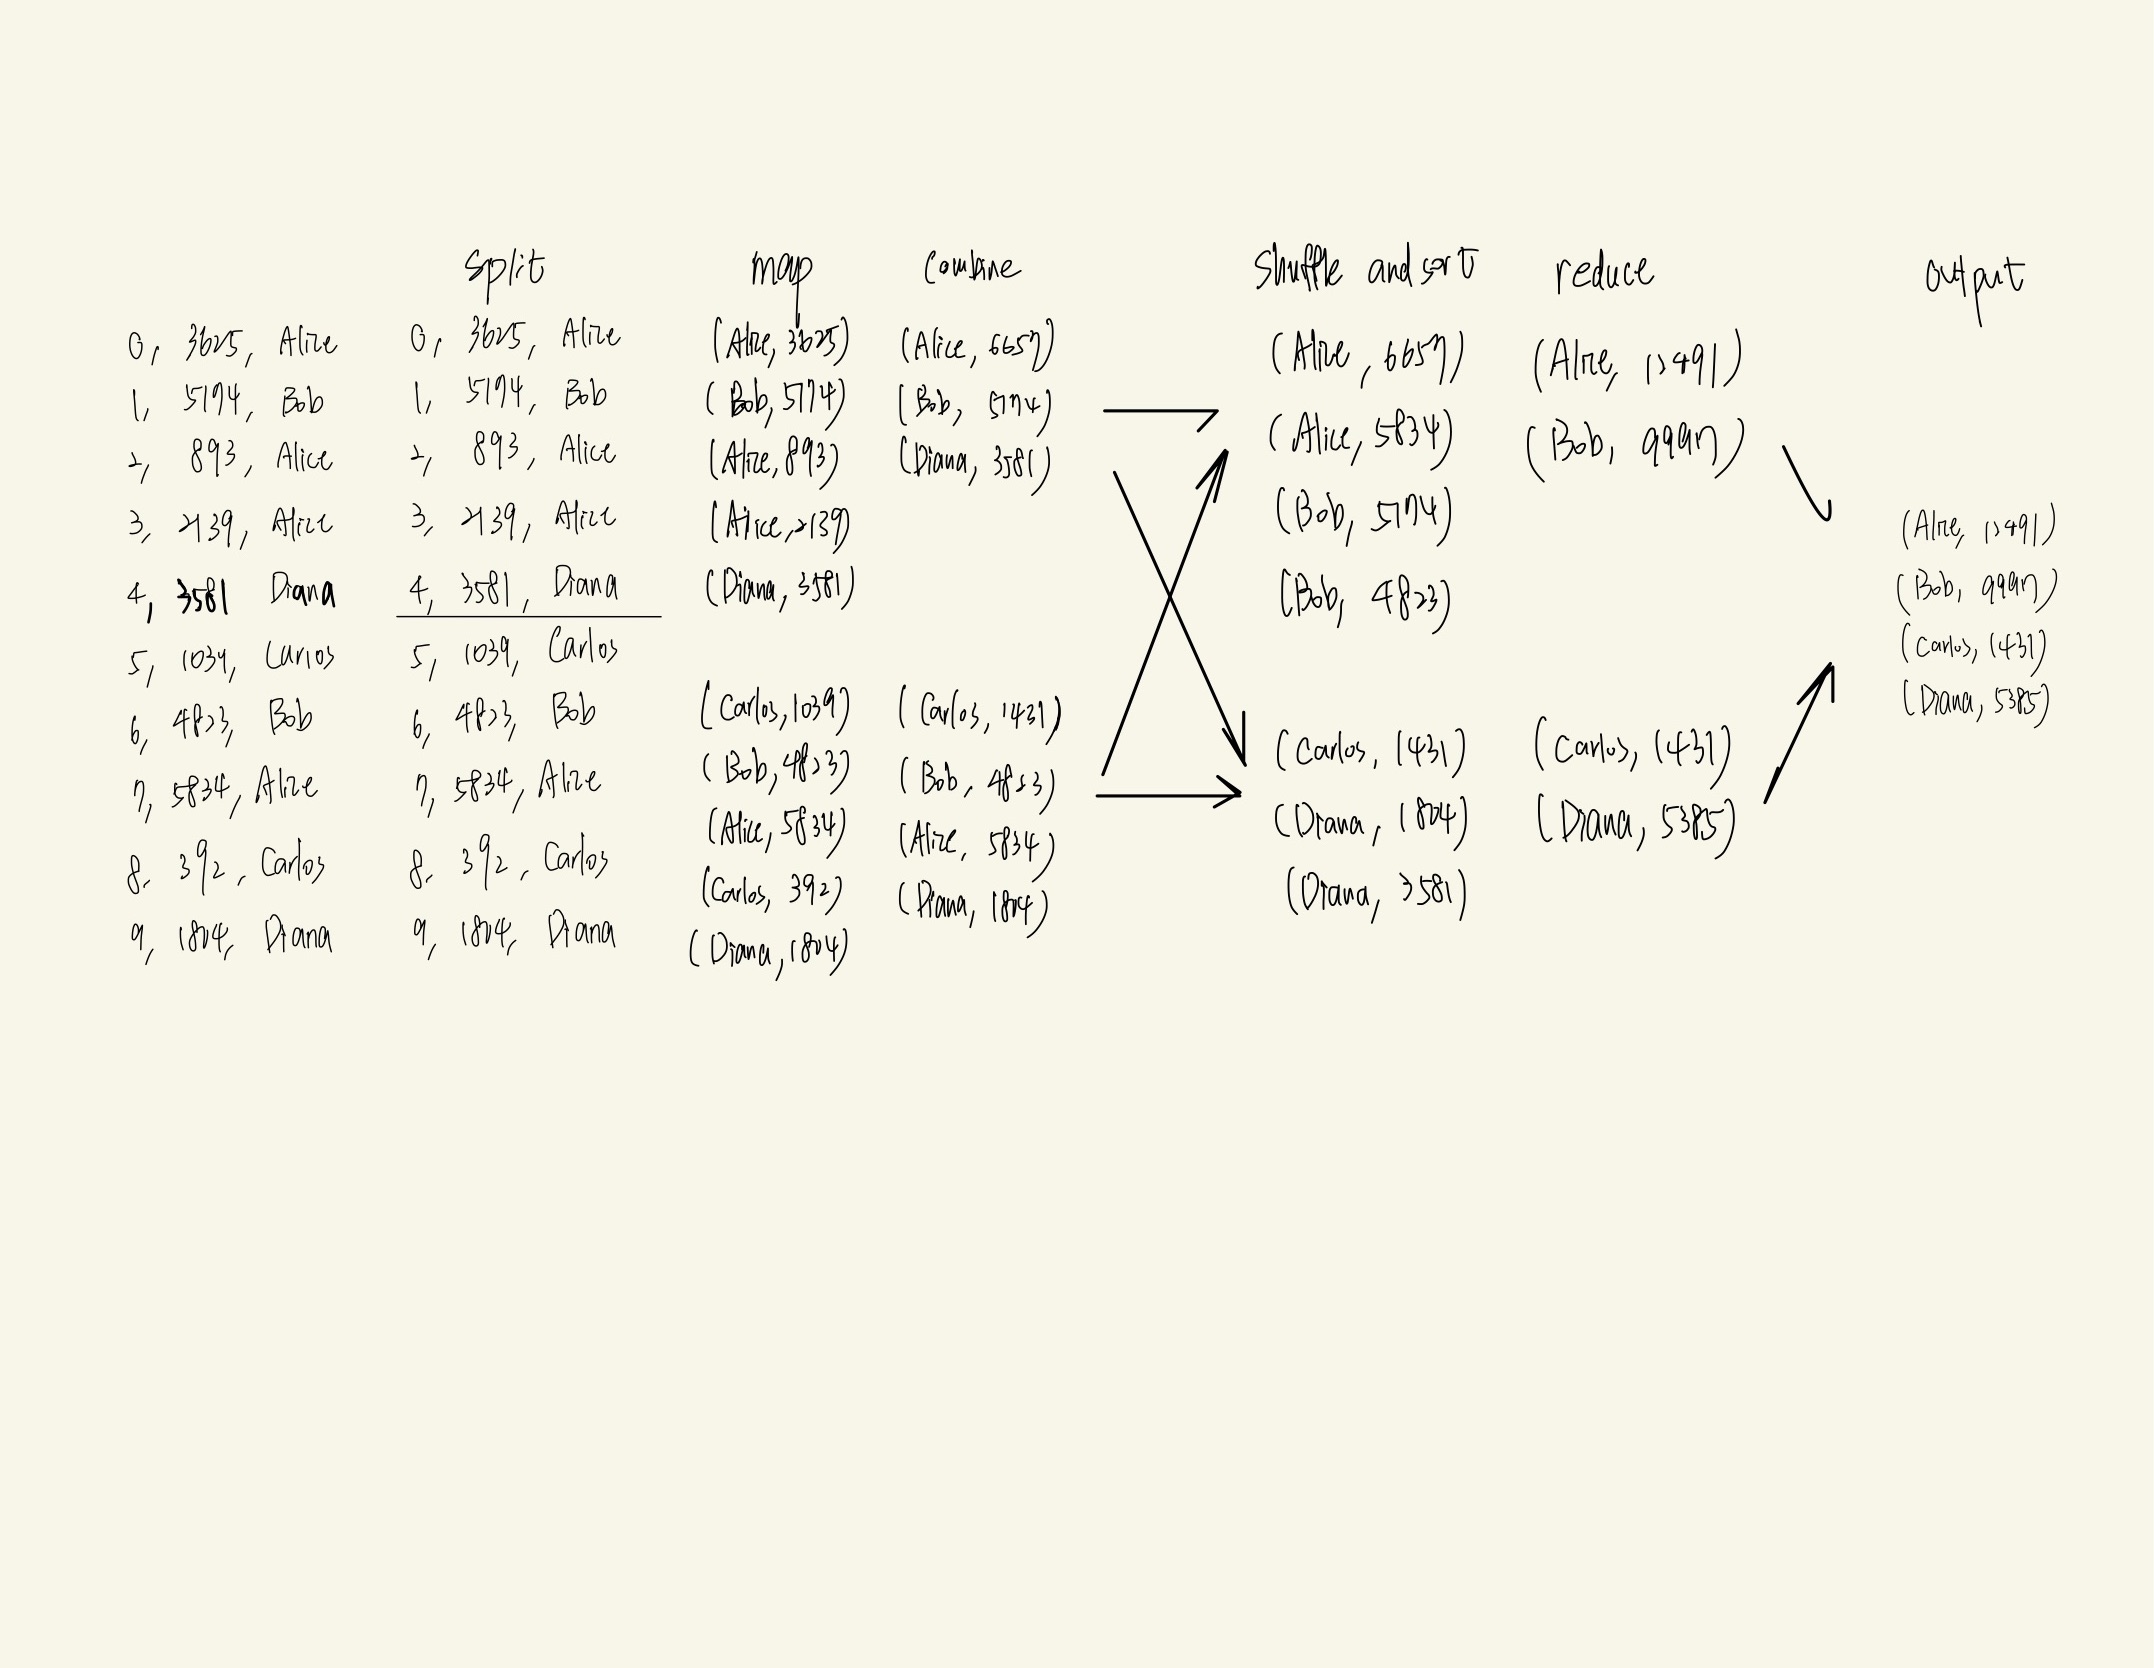 0, 3625, Alice
1, 5174, Bob
2, 893, Alice
3, 2139, Alice
4, 3581 Diana
5, 1039, Carlos
6, 4823, Bob
7, 5834, Alice
8. 392, Carlos
9, 1804, Diana
split
0, 3625, Alice
1, 5174, Bob
2, 893, Alice
3, 2139, Alice
4, 3581, Diana
5, 1039, Carlos
6, 4823, Bob
7, 5834, Alice
8. 392, Carlos
9, 1804, Diana
map
(Alice, 3625)
(Bob, 5174)
(Alice, 893)
(Alice, 2139)
(Diana, 3581)
(Carlos, 1039)
(Bob, 4823)
(Alice, 5834)
(Carlos, 392)
(Diana, 1804)
combine
(Alice, 6657)
(Bob, 5174)
(Diana, 3581)
(Carlos, 1431)
(Bob, 4823)
(Alice, 5834)
(Diana, 1804)
shuffle and sort
(Alice, 6657)
(Alice, 5834)
(Bob, 5174)
(Bob, 4823)
(Carlos, 1431)
(Diana, 1804)
(Diana, 3581)
reduce
(Alice, 12491)
(Bob, 9997)
(Carlos, 1431)
(Diana, 5385)
output
(Alice, 12491)
(Bob, 9997)
(Carlos, 1431)
(Diana, 5385)